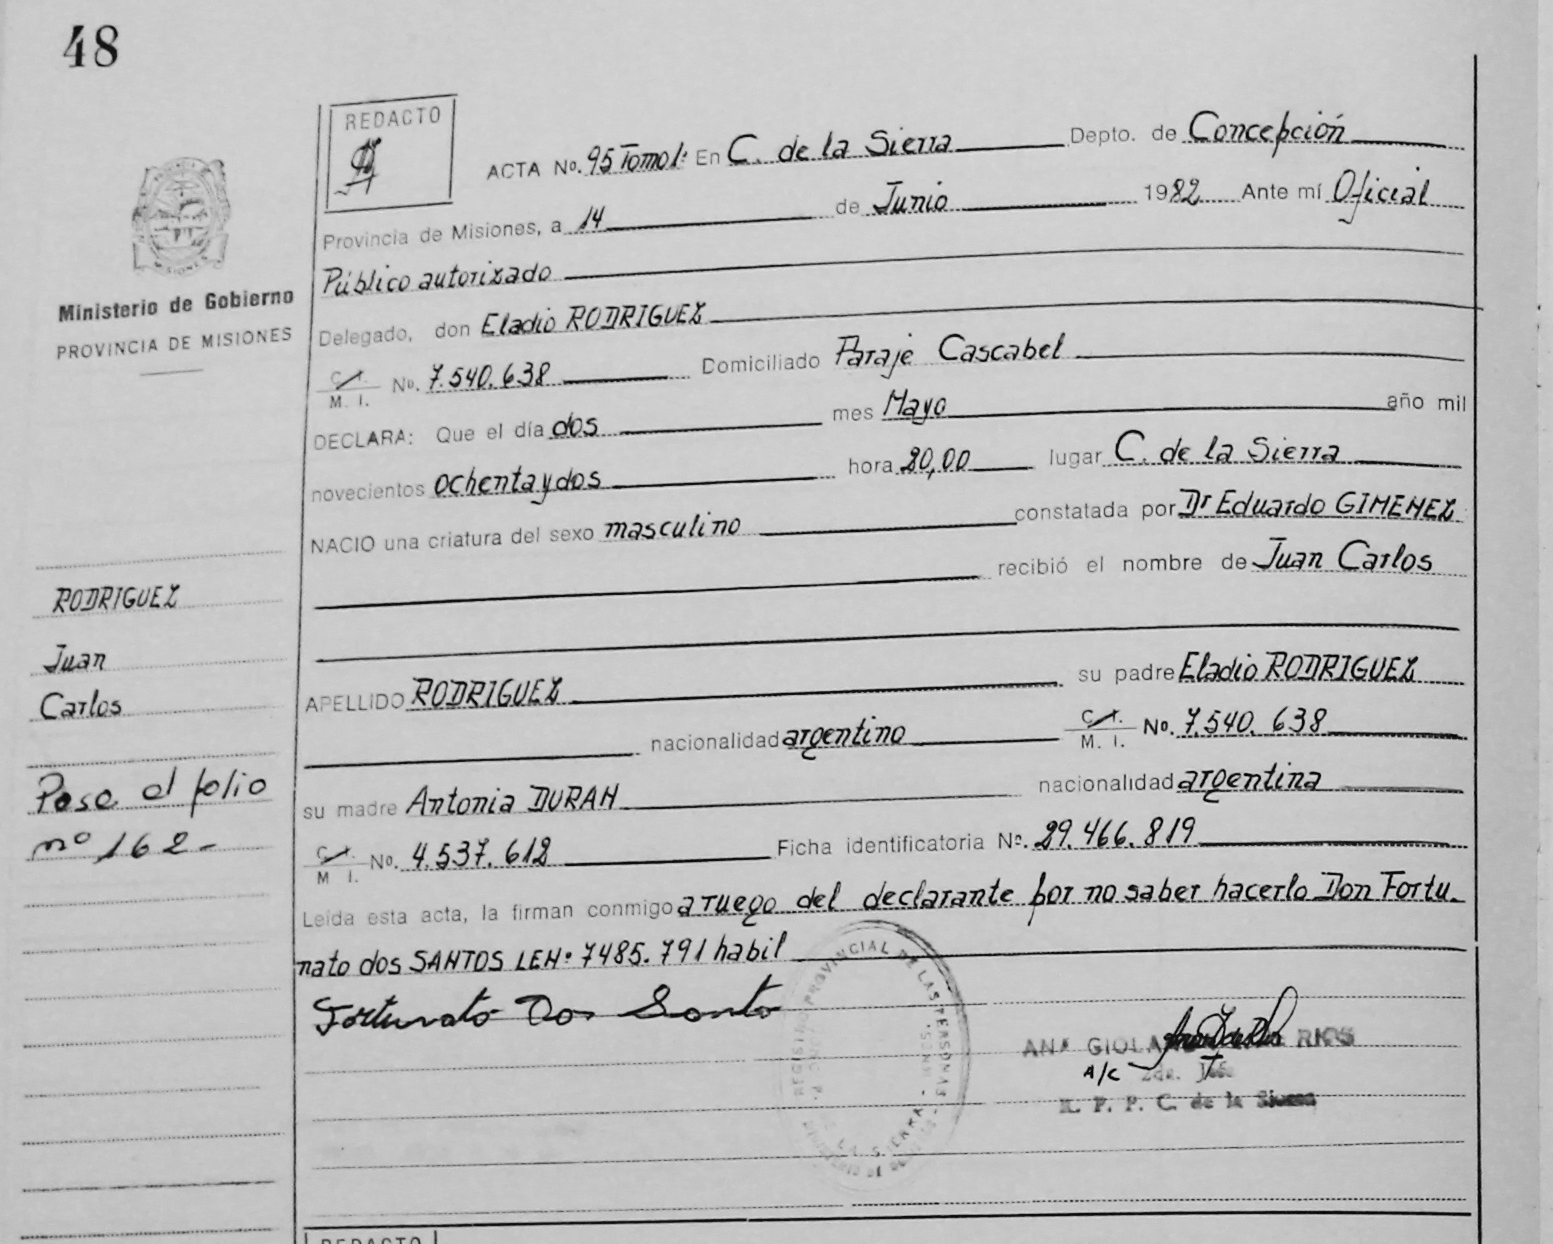 48
REDACTO
ACTA No. 95 Tomo 1: En C. de la Sierra Depto. de Concepción
Provincia de Misiones, a 14 de Junio 1982 Ante mí Oficial
Público autorizado
Delegado, don Eladio RODRIGUEZ
C. I.
M. I. No. 7.540.638 Domiciliado Paraje Cascabel
DECLARA: Que el día dos mes Mayo año mil
novecientos ochenta y dos hora 20,00 lugar C. de la Sierra
NACIO una criatura del sexo masculino constatada por Dr Eduardo GIMENEZ
recibió el nombre de Juan Carlos
APELLIDO RODRIGUEZ su padre Eladio RODRIGUEZ
nacionalidad argentino C. I. M. I. No. 7.540.638
su madre Antonia DURAN nacionalidad argentina
C. I. M I. No. 4.537.612 Ficha identificatoria No. 29.466.819
Leída esta acta, la firman conmigo a ruego del declarante por no saber hacerlo Don Fortu-
nato dos SANTOS LEN° 7485.791 habil
Fortunato Dos Santo
REGISTRO PROVINCIAL DE LAS PERSONAS
ANA RIOS
A/C 2da. Jefe
R. P. P. C. de la Sierra
MISIONES
Ministerio de Gobierno
PROVINCIA DE MISIONES
RODRIGUEZ
Juan
Carlos
Pasa al folio
nº 162-
REDACTO